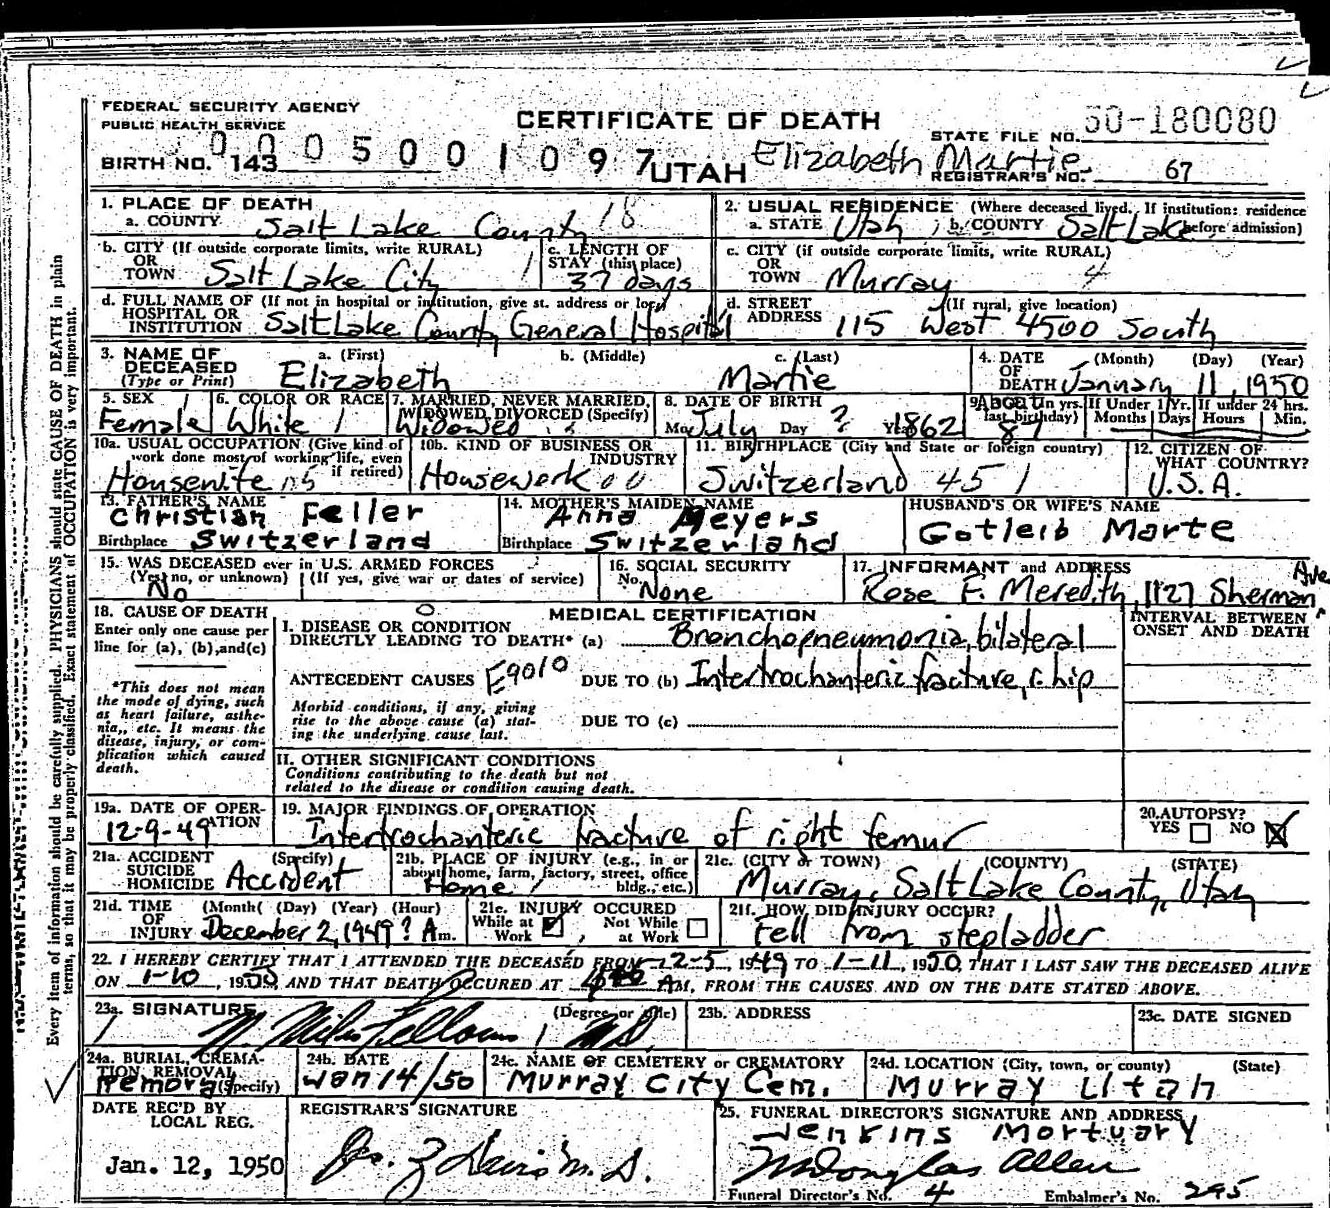 FEDERAL SECURITY AGENCY
PUBLIC HEALTH SERVICE
CERTIFICATE OF DEATH
STATE FILE NO. 50-180080
BIRTH NO. 143 0005001097 UTAH Elizabeth Martie REGISTRAR'S NO. 67
1. PLACE OF DEATH
a. COUNTY Salt Lake County 18
2. USUAL RESIDENCE (Where deceased lived. If institution: residence before admission)
a. STATE Utah b. COUNTY Salt Lake
b. CITY (If outside corporate limits, write RURAL) OR TOWN Salt Lake City 1
c. LENGTH OF STAY (this place) 37 days
c. CITY (if outside corporate limits, write RURAL) OR TOWN Murray 4
d. FULL NAME OF (If not in hospital or institution, give st. address or loca
HOSPITAL OR INSTITUTION Salt Lake County General Hospital
d. STREET ADDRESS (If rural, give location) 115 West 4500 South
3. NAME OF DECEASED (Type or Print)
a. (First) Elizabeth b. (Middle) c. (Last) Martie
4. DATE OF DEATH (Month) (Day) (Year) January 11, 1950
5. SEX Female 1
6. COLOR OR RACE White 1
7. MARRIED, NEVER MARRIED, WIDOWED, DIVORCED (Specify) Widowed
8. DATE OF BIRTH Mo. July Day ? Yr. 1862
9. AGE (In yrs. last birthday) 87
If Under 1 Yr. Months Days
If under 24 hrs. Hours Min.
10a. USUAL OCCUPATION (Give kind of work done most of working life, even if retired) Housewife
10b. KIND OF BUSINESS OR INDUSTRY Housework 00
11. BIRTHPLACE (City and State or foreign country) Switzerland 45 1
12. CITIZEN OF WHAT COUNTRY? U.S.A.
13. FATHER'S NAME Christian Feller
Birthplace Switzerland
14. MOTHER'S MAIDEN NAME Anna Meyers
Birthplace Switzerland
HUSBAND'S OR WIFE'S NAME
Gotleib Marte
15. WAS DECEASED ever in U.S. ARMED FORCES
(Yes, no, or unknown) (If yes, give war or dates of service)
No
16. SOCIAL SECURITY No. None
17. INFORMANT and ADDRESS
Rose F. Meredith, 1127 Sherman Ave
18. CAUSE OF DEATH
Enter only one cause per line for (a), (b), and (c)
*This does not mean the mode of dying, such as heart failure, asthenia,, etc. It means the disease, injury, or complication which caused death.
MEDICAL CERTIFICATION
INTERVAL BETWEEN ONSET AND DEATH
I. DISEASE OR CONDITION
DIRECTLY LEADING TO DEATH* (a) Bronchopneumonia, bilateral
ANTECEDENT CAUSES E9010 DUE TO (b) Intertrochanteric fracture, hip
Morbid conditions, if any, giving rise to the above cause (a) stating the underlying cause last.
DUE TO (c)
II. OTHER SIGNIFICANT CONDITIONS
Conditions contributing to the death but not
related to the disease or condition causing death.
19a. DATE OF OPERATION 12-9-49
19. MAJOR FINDINGS OF OPERATION
Intertrochanteric fracture of right femur
20. AUTOPSY?
YES NO X
21a. ACCIDENT SUICIDE HOMICIDE (Specify) Accident
21b. PLACE OF INJURY (e.g., in or about home, farm, factory, street, office bldg., etc.) Home
21c. (CITY OR TOWN) (COUNTY) (STATE)
Murray, Salt Lake County, Utah
21d. TIME OF INJURY (Month) (Day) (Year) (Hour) December 2, 1949 ? Am.
21e. INJURY OCCURED
While at Work Not While at Work
21f. HOW DID INJURY OCCUR?
Fell from stepladder
22. I HEREBY CERTIFY THAT I ATTENDED THE DECEASED FROM 12-5, 1949 TO 1-11, 1950, THAT I LAST SAW THE DECEASED ALIVE
ON 1-10, 1950, AND THAT DEATH OCCURED AT AM, FROM THE CAUSES AND ON THE DATE STATED ABOVE.
23a. SIGNATURE (Degree or title)
N. Miles Fellows MD
23b. ADDRESS
23c. DATE SIGNED
24a. BURIAL, CREMATION, REMOVAL (Specify) Removal
24b. DATE Jan 14/50
24c. NAME OF CEMETERY OR CREMATORY
Murray City Cem.
24d. LOCATION (City, town, or county) (State)
Murray Utah
DATE REC'D BY LOCAL REG.
Jan. 12, 1950
REGISTRAR'S SIGNATURE
25. FUNERAL DIRECTOR'S SIGNATURE AND ADDRESS
Jenkins Mortuary
Douglas Allen
Funeral Director's No. 4 Embalmer's No. 295
Every item of information should be carefully supplied. PHYSICIANS should state CAUSE OF DEATH in plain
terms, so that it may be properly classified. Exact statement of OCCUPATION is very important.